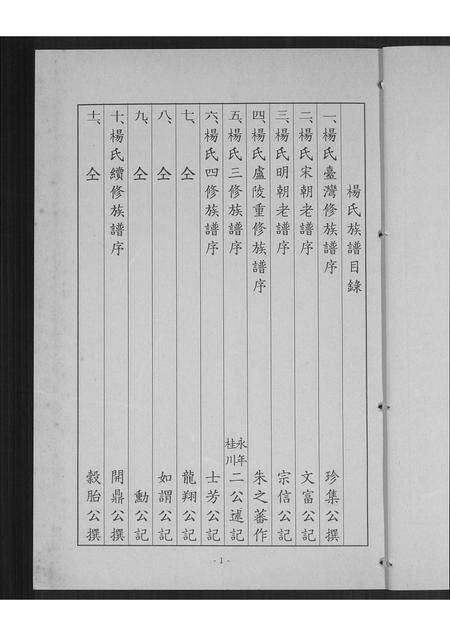 楊氏族譜目錄
一、楊氏臺灣修族譜序 珍集公撰
二、楊氏宋朝老譜序 文富公記
三、楊氏明朝老譜序 宗信公記
四、楊氏盧陵重修族譜序 朱之蕃作
五、楊氏三修族譜序 永年桂川二公述記
六、楊氏四修族譜序 士芳公記
七、仝 龍翔公記
八、仝 如謂公記
九、仝 勳公記
十、楊氏續修族譜序 開鼎公撰
十一、仝 穀胎公撰
- 1 -